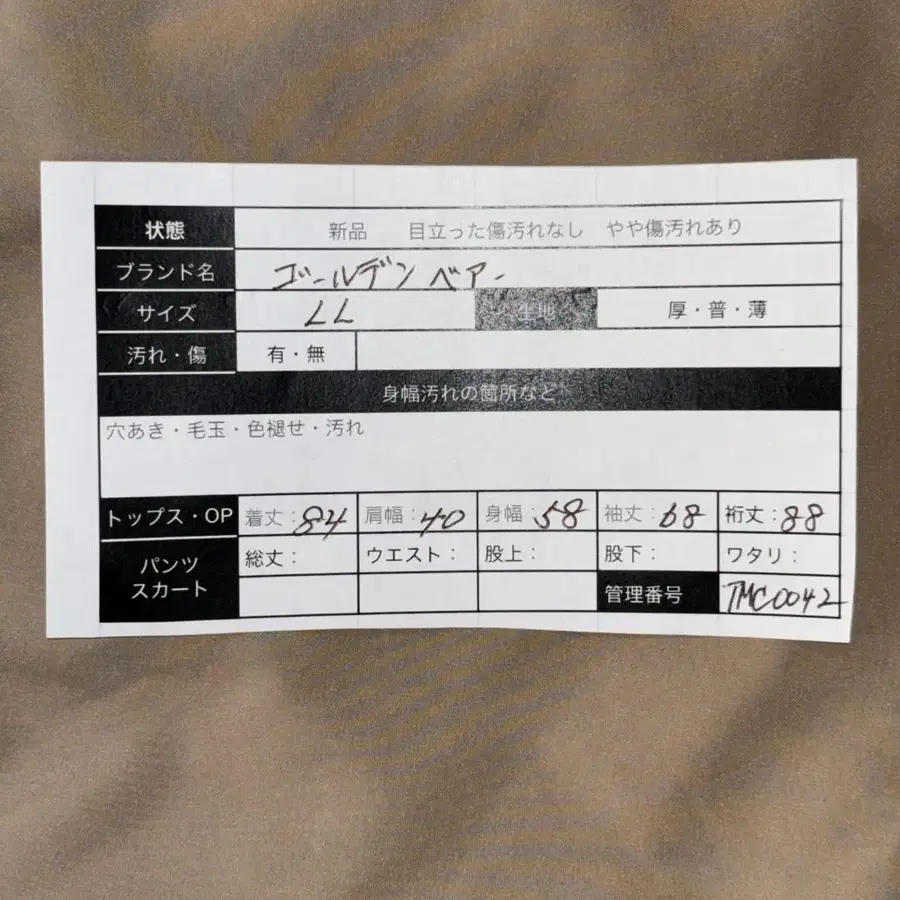 状態 新品 目立った傷汚れなし やや傷汚れあり
ブランド名 ゴールデンベアー
サイズ LL 生地 厚・普・薄
汚れ・傷 有・無
身幅汚れの箇所など
穴あき・毛玉・色褪せ・汚れ
トップス・OP 着丈：84 肩幅：40 身幅：58 袖丈：68 裄丈：88
パンツ スカート 総丈： ウエスト： 股上： 股下： ワタリ：
管理番号 TMC0042